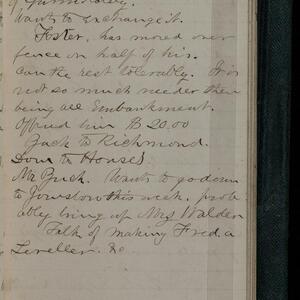 of
Wants to exchange it.
Foster, has moved over
fence on half of his.
can the rest tolerably. It is
not so much needed there
being all Embankment.
Offered him $ 20.00
Back to Richmond.
Down to House
Mr Buck. Wants to go down
to this week, prob
ably bring up Mrs Walder
Talk of making Fred a
Leveller. &c